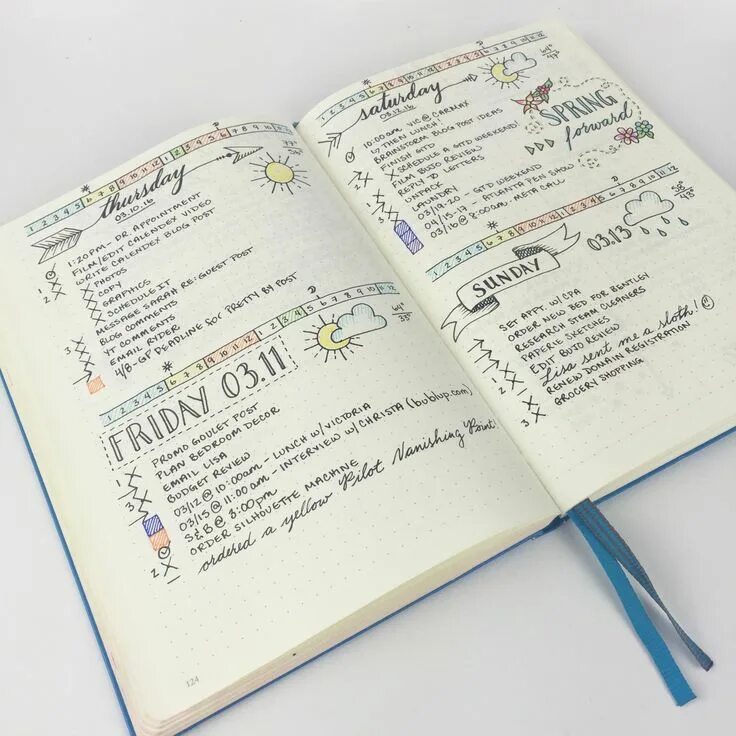 1 2 3 4 5 6 7 8 9 10 11 12 1 2 3 4 5 6 7 8 9 10 11 12
thursday
03.10.16
77°
54°
1:20pm - DR. APPOINTMENT
FILM/EDIT CALENDEX VIDEO
WRITE CALENDEX BLOG POST
PHOTOS
COPY
GRAPHICS
SCHEDULE IT
MESSAGE SARAH RE: GUEST POST
BLOG COMMENTS
YT COMMENTS
EMAIL RYDER
4/8 - GP DEADLINE for PRETTY BY POST
1
2
3
1 2 3 4 5 6 7 8 9 10 11 12 1 2 3 4 5 6 7 8 9 10 11 12
FRIDAY 03.11
64°
PROMO GOULET POST
PLAN BEDROOM DECOR
EMAIL LISA
BUDGET REVIEW
03/12 @ 10:00am - LUNCH W/VICTORIA
03/15 @ 11:00am - INTERVIEW W/CHRISTA (bublup.com)
S&B @ 8:00pm
ORDER SILHOUETTE MACHINE
ordered a yellow Pilot Vanishing Point!
1
3
2
124
1 2 3 4 5 6 7 8 9 10 11 12 1 2 3 4 5 6 7 8 9 10 11 12
saturday
03.12.16
64°
47°
SPRING
forward
10:00am VIC @ CARMAX
THEN LUNCH!
BRAINSTORM BLOG POST IDEAS
FINISH GTD
SCHEDULE A GTD WEEKEND!
FILM BUJO REVIEW
REPLY TO LETTERS
UNPACK
LAUNDRY
03/19-20 - GTD WEEKEND
04/15-17 - ATLANTA PEN SHOW
03/16 @ 8:00am - META CALL
1
2
3
1 2 3 4 5 6 7 8 9 10 11 12 1 2 3 4 5 6 7 8 9 10 11 12
SUNDAY
03.13
58°
43°
SET APPT. W/CPA
ORDER NEW BED FOR BENTLEY
RESEARCH STEAM CLEANERS
PAPERIE SKETCHES
EDIT BUJO REVIEW
Lisa sent me a sloth!
RENEW DOMAIN REGISTRATION
GROCERY SHOPPING
1
3
2